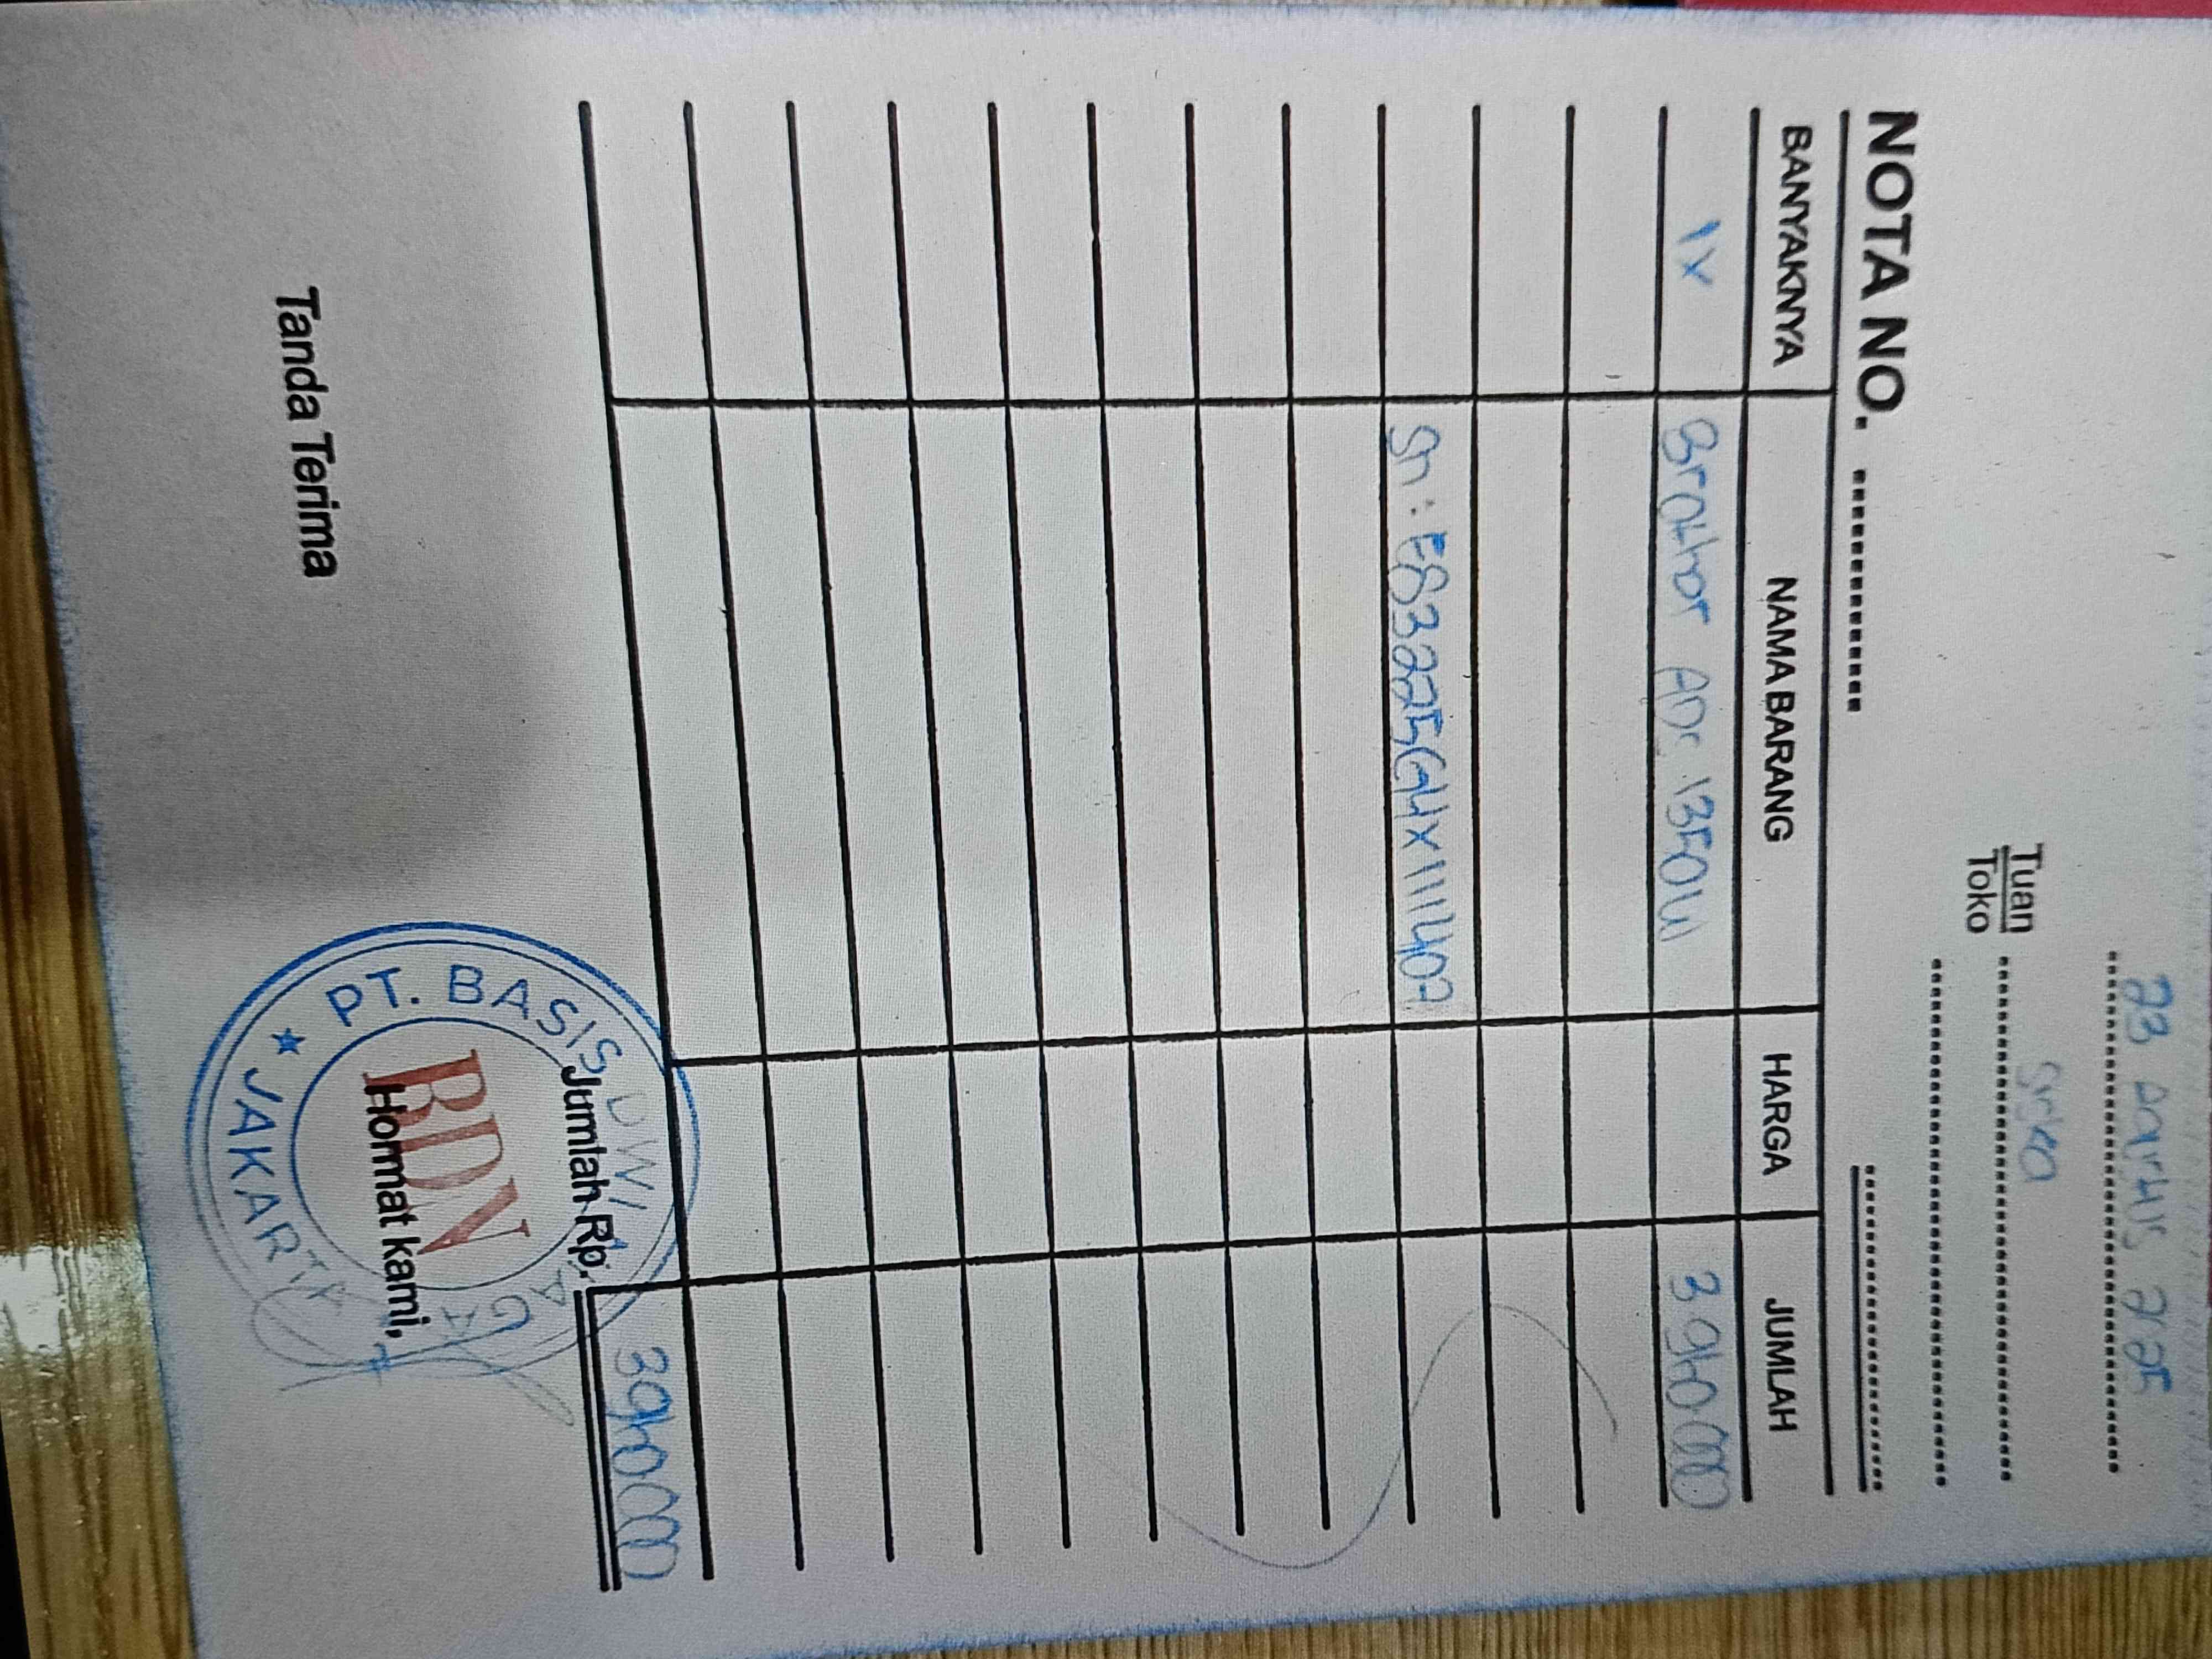 23 Agustus 2025
Tuan
Toko
NOTA NO.
BANYAKNYA NAMA BARANG HARGA JUMLAH
1x Brother ADS 1350W
Sn: E83225G4X111402
Jumlah Rp.
Tanda Terima
Hormat kami,
PT. BASIS DWI
BDN
★ JAKARTA